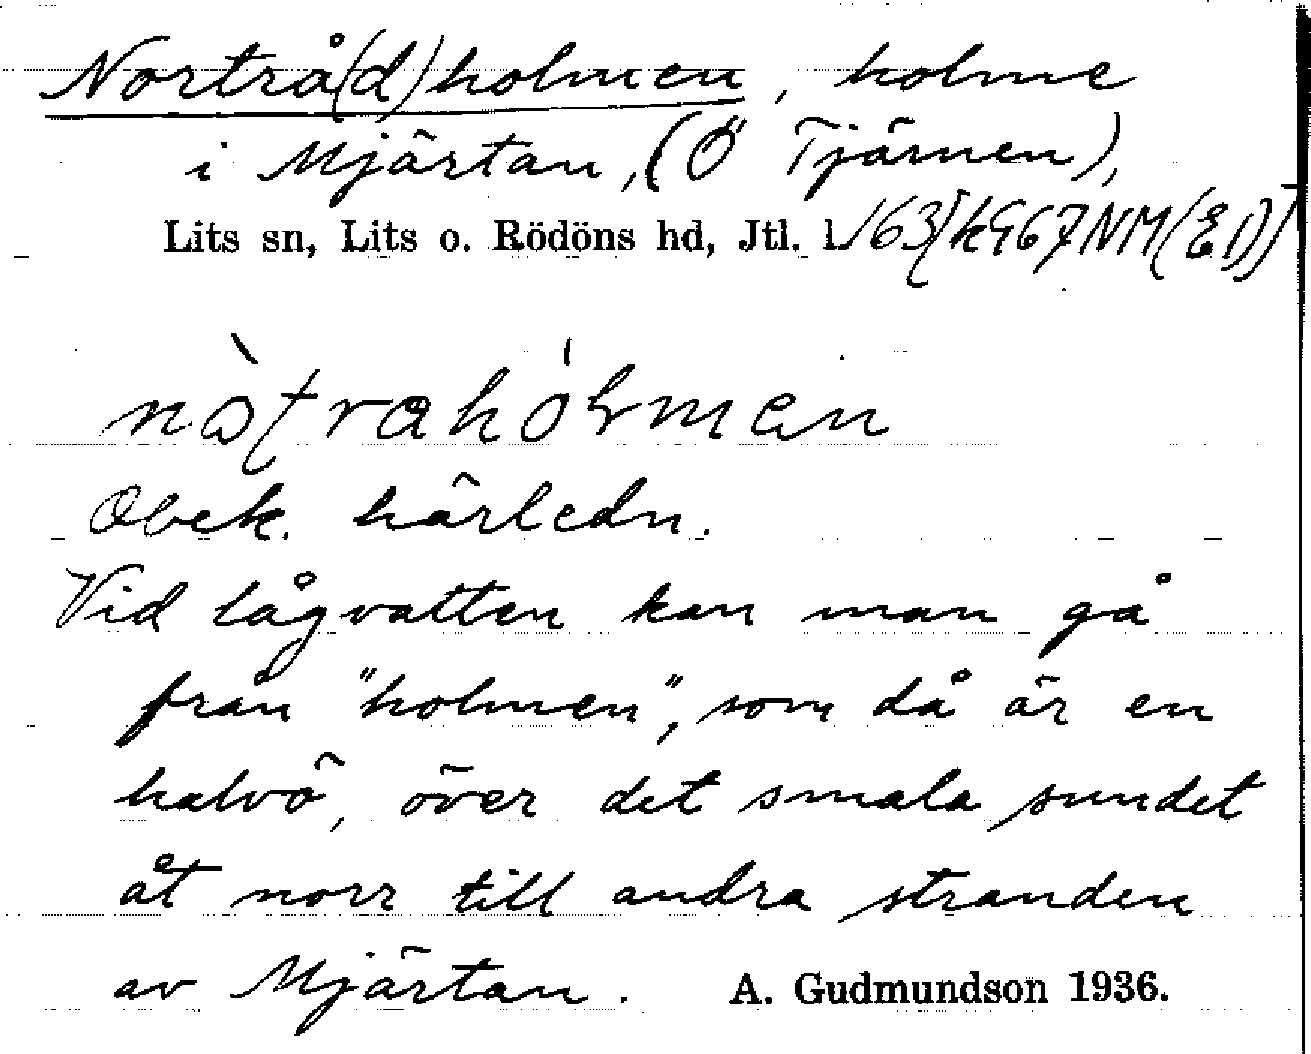 Nortrå(d)holmen, holme
i Mjärtan, (Ö Tjärnen),
Lits sn, Lits o. Rödöns hd, Jtl. l.
Obek. härledn.
Vid lågvatten kan man gå
från "holmen", som då är en
halvö, över det smala sundet
åt norr till andra stranden
av Mjärtan. A. Gudmundson 1936.